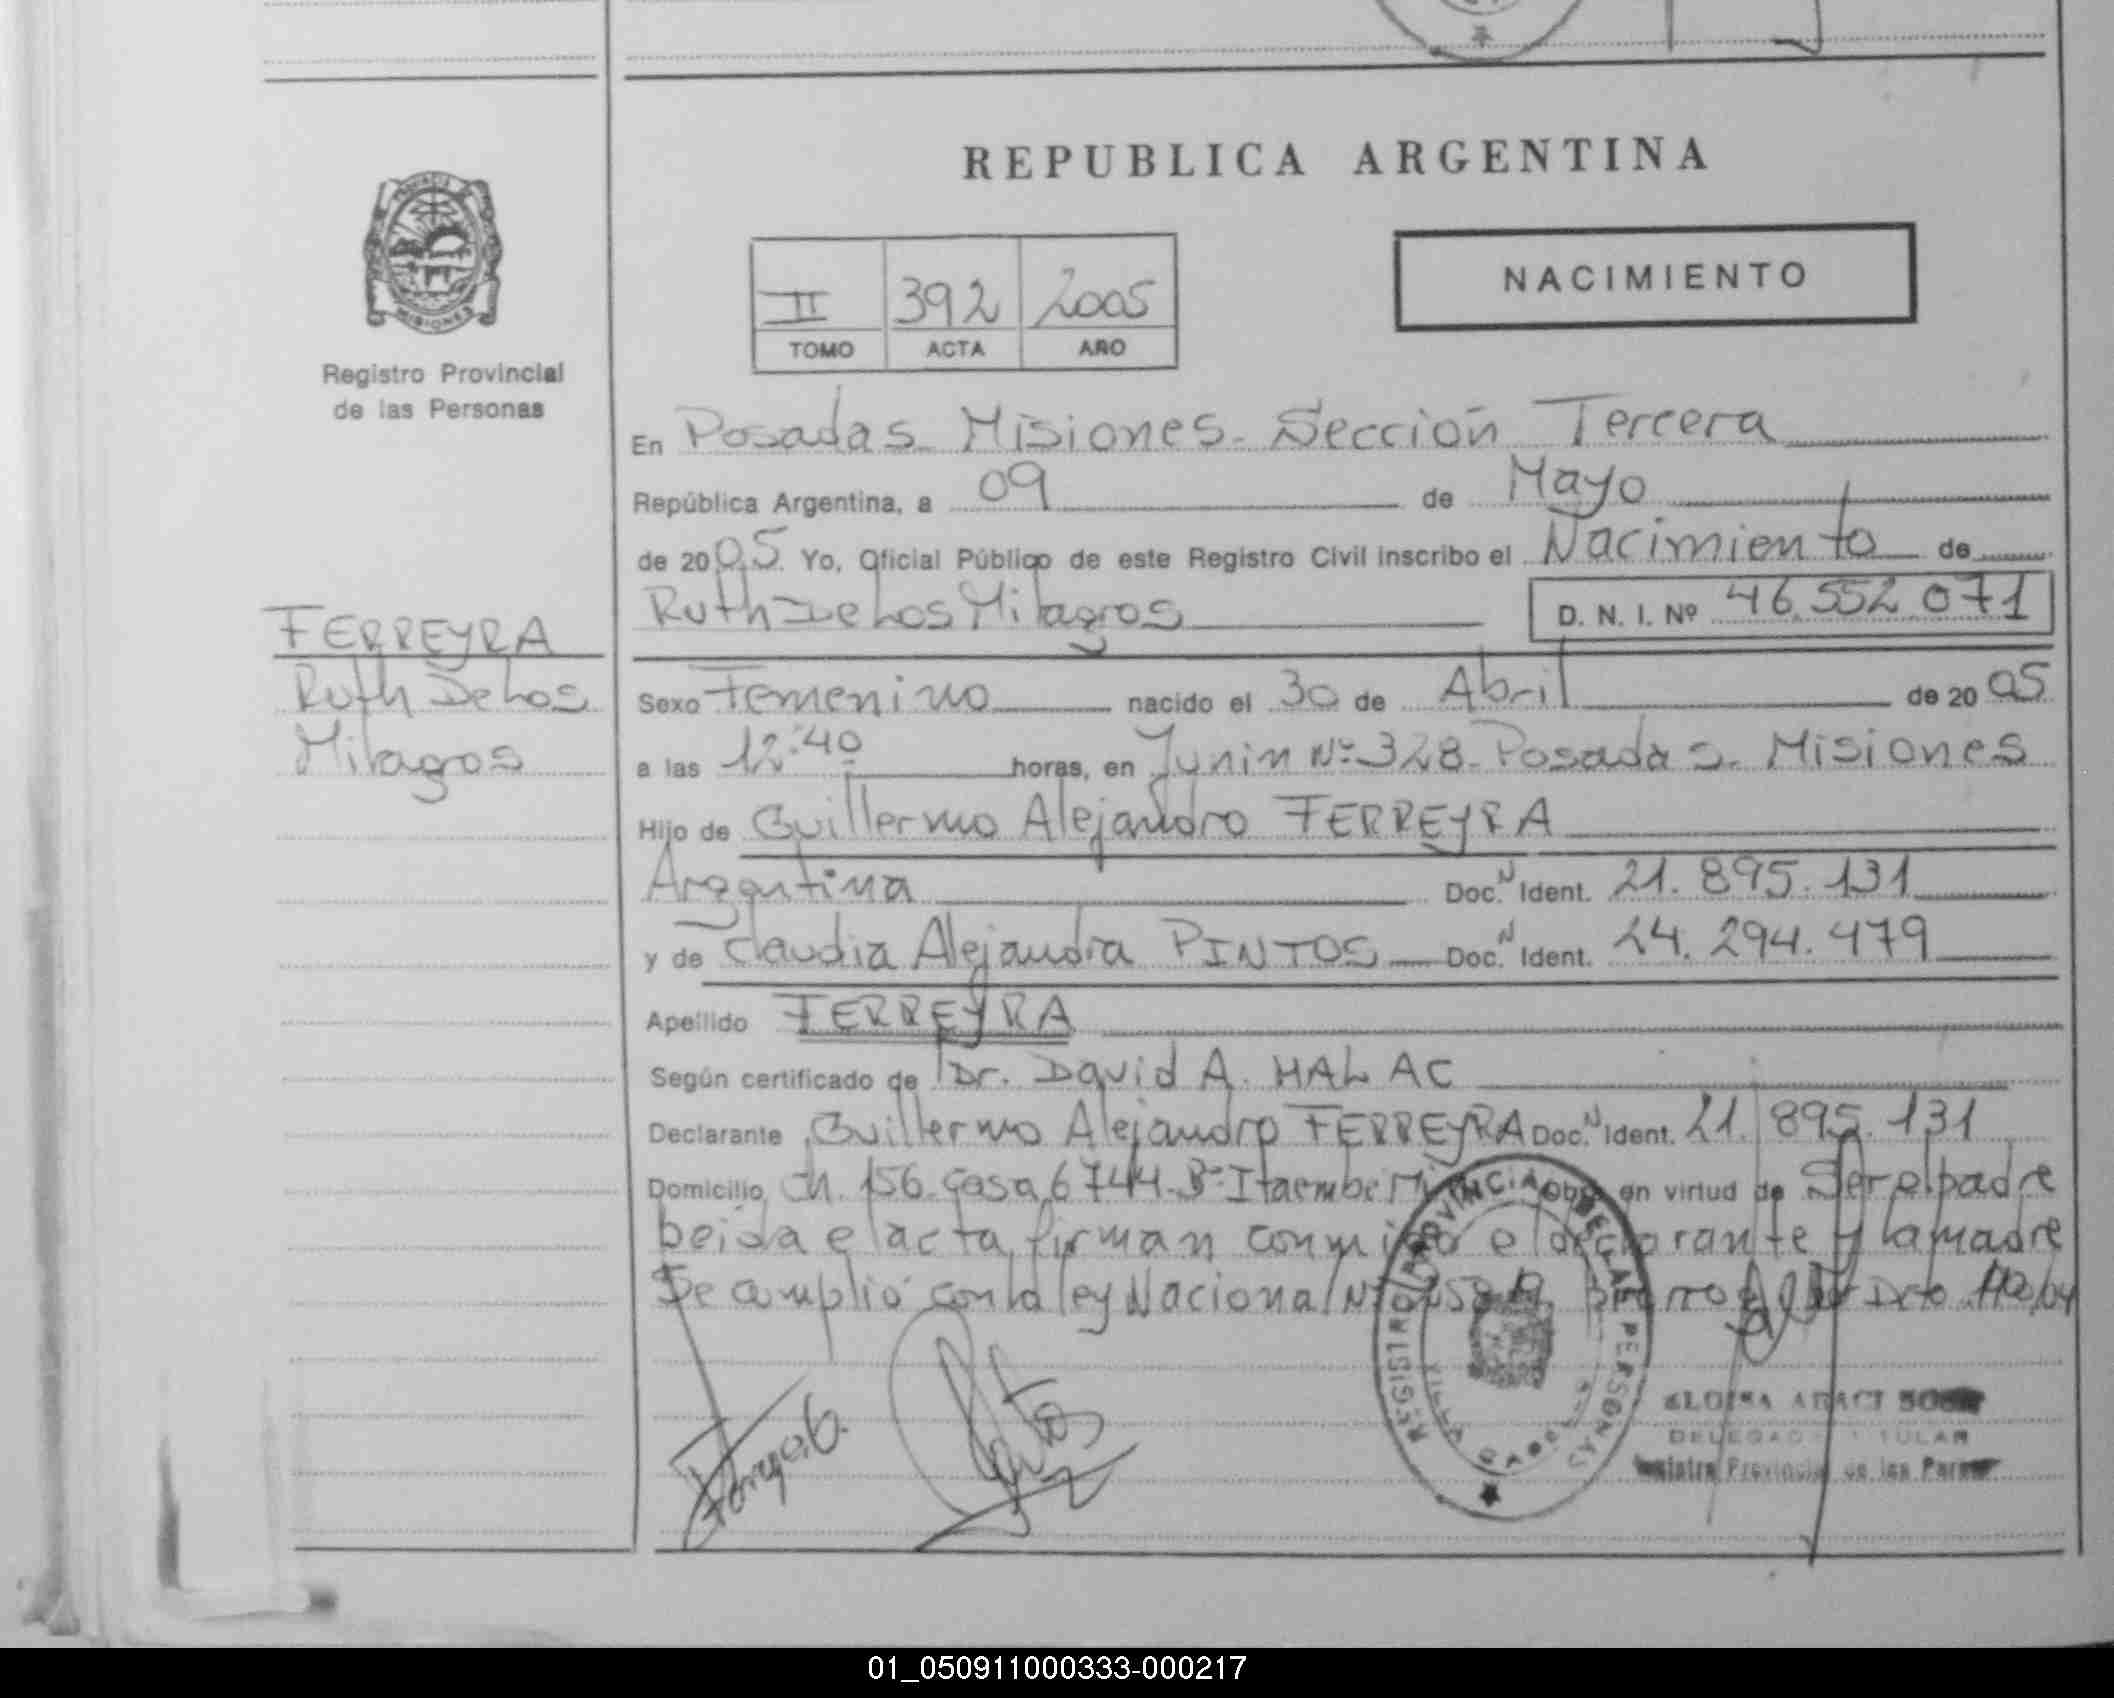 REPUBLICA ARGENTINA
NACIMIENTO
II 392 2005
TOMO ACTA AÑO
PROVINCIA DE MISIONES
Registro Provincial
de las Personas
En Posadas Misiones. Sección Tercera
República Argentina, a 09 de Mayo
de 2005. Yo, Oficial Público de este Registro Civil inscribo el Nacimiento de
Ruth De Los Milagros D. N. I. Nº 46.552.071
FERREYRA
Ruth De Los
Milagros
Sexo Femenino nacido el 30 de Abril de 2005
a las 12:40 horas, en Junin Nº 328. Posadas. Misiones
Hijo de Guillermo Alejandro FERREYRA
Argentina Doc. N Ident. 21.895.131
y de Claudia Alejandra PINTOS Doc. N Ident. 24.294.479
Apellido FERREYRA
Según certificado de Dr. David A. HALAC
Declarante Guillermo Alejandro FERREYRA Doc. N Ident. 21.895.131
Domicilio Ch. 156 Casa 6744 Bº Itaembe Mi obra en virtud de Ser el padre
Leida el acta firman conmigo el declarante y la madre
Se cumplió con la ley Nacional Dcto
REGISTRO PROVINCIAL DE LAS PERSONAS
POSADAS
ELOISA ARACI
DELEGADO TITULAR
Provincial de las
01_050911000333-000217